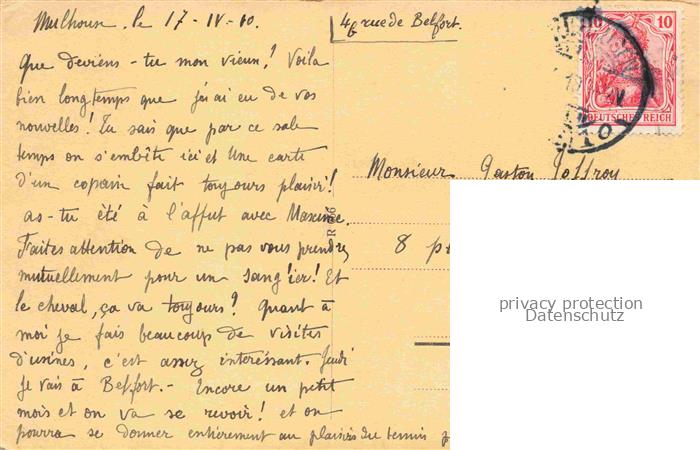 Mulhouse, le 17-IV-10.
46 rue de Belfort.
Que deviens-tu mon vieux! Voila
bien longtemps que j'ai eu de vos
nouvelles! Tu sais que par ce sale
temps on s'embête ici et une carte
d'un copain fait toujours plaisir!
as-tu été à l'affut avec Maxime.
Faites attention de ne pas vous prendre
mutuellement pour un sanglier! Et
le cheval, ça va toujours? Quant à
moi je fais beaucoup de visites
d'usines, c'est assez intéressant. Jeudi
je vais à Belfort.- Encore un petit
mois et on va se revoir! et on
pourra se donner entièrement au plaisir du tennis
10 10
DEUTSCHES REICH
Monsieur Gaston Joffroy
8
privacy protection
Datenschutz